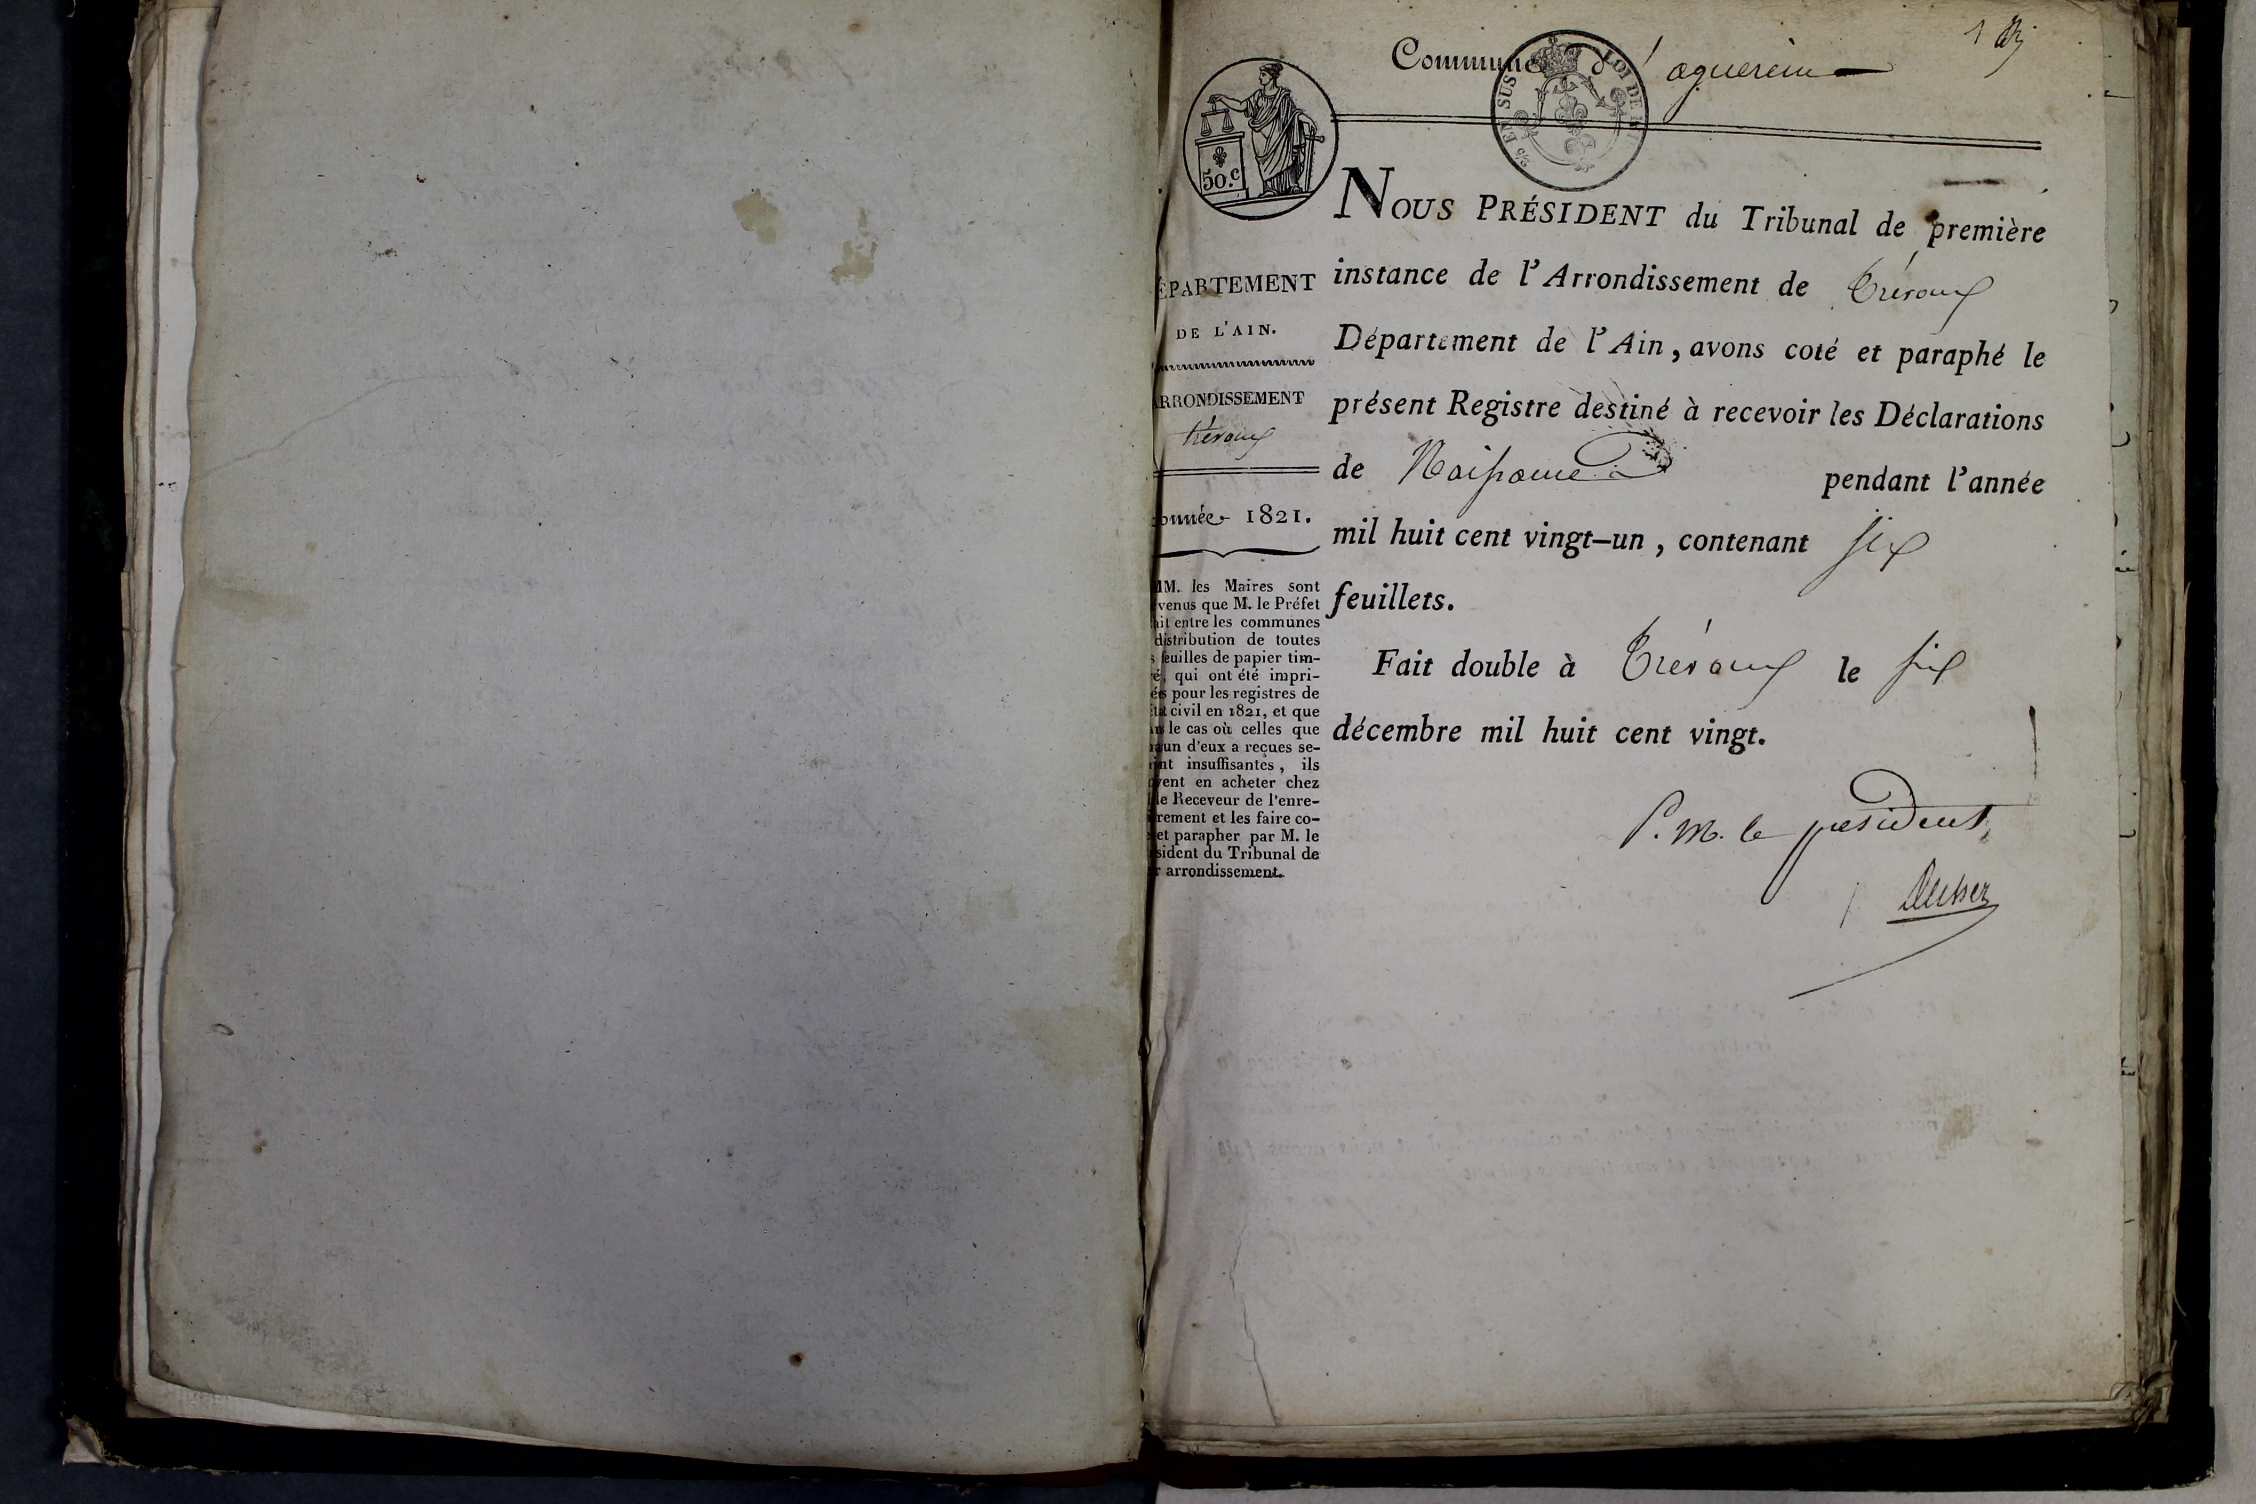 1
Commune d'aguerein
C/S EN SUS LOI DE
50.c
NOUS PRÉSIDENT du Tribunal de première
instance de l'Arrondissement de Trévoux
Département de l'Ain, avons coté et paraphé le
présent Registre destiné à recevoir les Déclarations
de Naissance pendant l'année
mil huit cent vingt-un, contenant six
feuillets.
Fait double à Trévoux le six
décembre mil huit cent vingt.
P. M. le president
ÉPARTEMENT
DE L'AIN.
ARRONDISSEMENT
trévoux
année 1821.
MM. les Maires sont
venus que M. le Préfet
ait entre les communes
distribution de toutes
s feuilles de papier tim-
é, qui ont été impri-
ées pour les registres de
état civil en 1821, et que
le cas où celles que
un d'eux a reçues se-
nt insuffisantes, ils
vent en acheter chez
le Receveur de l'enre-
rement et les faire co-
et parapher par M. le
sident du Tribunal de
r arrondissement.